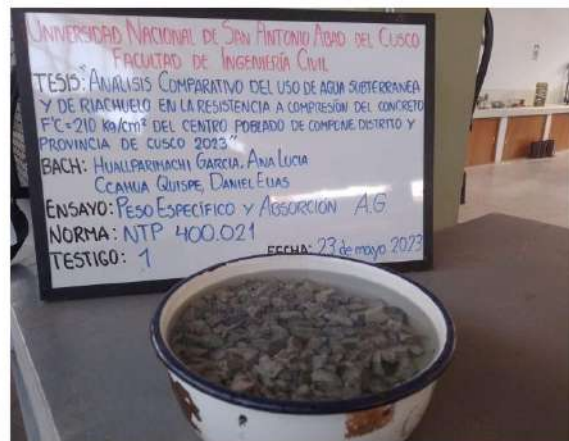 UNIVERSIDAD NACIONAL DE SAN ANTONIO ABAD DEL CUSCO
FACULTAD DE INGENIERÍA CIVIL
TESIS: "ANALISIS COMPARATIVO DEL USO DE AGUA SUBTERRANEA
Y DE RIACHUELO EN LA RESISTENCIA A COMPRESIÓN DEL CONCRETO
F'C=210 Kg/cm² DEL CENTRO POBLADO DE COMPONE DISTRITO Y
PROVINCIA DE CUSCO 2023"
BACH: HUALLPARIMACHI GARCIA, ANA LUCIA
CCAHUA QUISPE, DANIEL ELIAS
ENSAYO: PESO ESPECÍFICO Y ABSORCIÓN A.G
NORMA: NTP 400.021
TESTIGO: 1 FECHA: 23 de mayo 2023